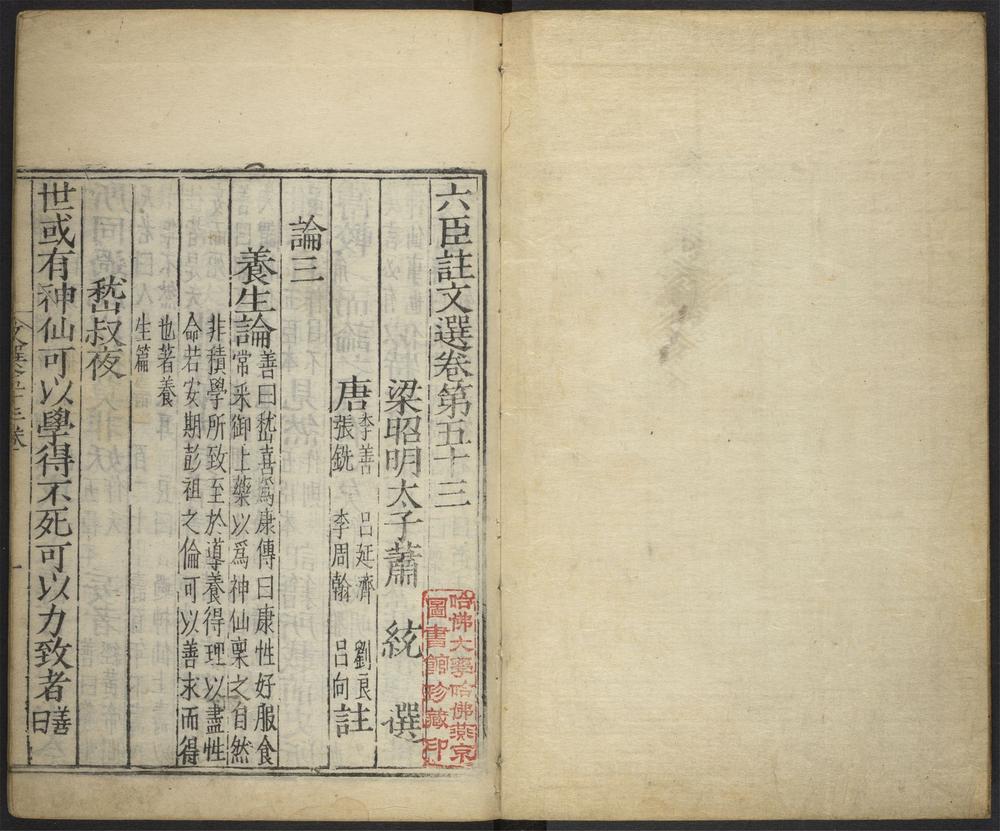 六臣註文選卷第五十三
梁昭明太子蕭統選
唐李善呂延濟劉良
張銑李周翰呂向註
論三
養生論善曰嵇喜爲康傳曰康性好服食
常采御上藥以爲神仙稟之自然
非積學所致至於導養得理以盡性
命若安期彭祖之倫可以善求而得
也著養
生篇
嵇叔夜
世或有神仙可以學得不死可以力致者善
曰
哈佛大學哈佛燕京
圖書館珍藏印